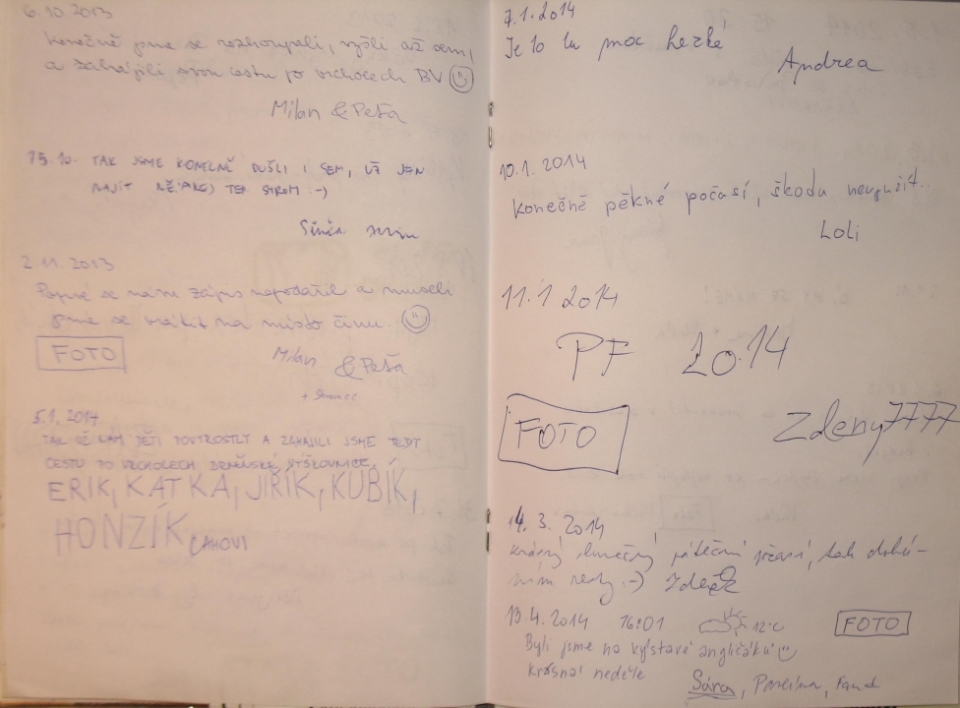 6.10.2013
Konečně jsme se rozhoupali, vyšli až sem,
a zahájili svou cestu po vrcholech BV
Milan & Peťa
15.10. TAK JSME KONEČNĚ DOŠLI I SEM, UŽ JEN
NAJÍT TEN STROM :-)
2.11.2013
Poprvé se nám zápis nepodařil a museli
jsme se vrátit na místo činu.
FOTO
Milan & Peťa
5.1.2014
TAK UŽ NÁM DĚTI POVYROSTLY A ZAHÁJILI JSME TEDY
CESTU PO VRCHOLECH BRNĚNSKÉ VÝŠKOVNICE.
ERIK, KATKA, JIŘÍK, KUBÍK,
HONZÍK CAHOVI
7.1.2014
Je to tu moc hezké
Andrea
10.1.2014
Konečně pěkné počasí, škoda nevyužít..
Loli
11.1 2014
PF 2014
FOTO
Zdeny7777
14.3.2014
krásný slunečný páteční, tak dohá-
ním resty :-) Zdeněk
13.4.2014 16:01 12°C FOTO
Byli jsme na výstavě angličáků
krásná neděle
Sára, Pavlína, Fanda